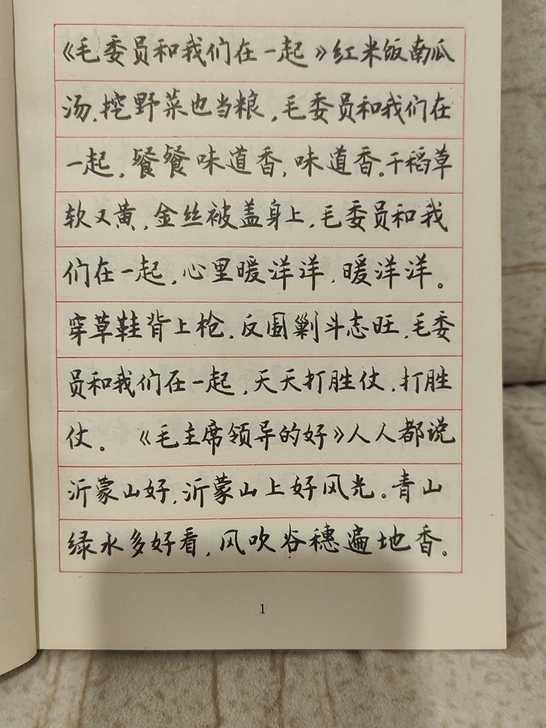 《毛委员和我们在一起》红米饭南瓜
汤,挖野菜也当粮,毛委员和我们在
一起,餐餐味道香,味道香。干稻草
软又黄,金丝被盖身上,毛委员和我
们在一起,心里暖洋洋,暖洋洋。
穿草鞋背上枪,反围剿斗志旺,毛委
员和我们在一起,天天打胜仗,打胜
仗。《毛主席领导的好》人人都说
沂蒙山好,沂蒙山上好风光。青山
绿水多好看,风吹谷穗遍地香。
1